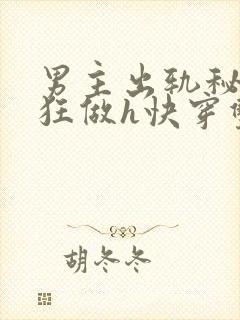 男主出轨秘
狂做h快穿
胡冬冬